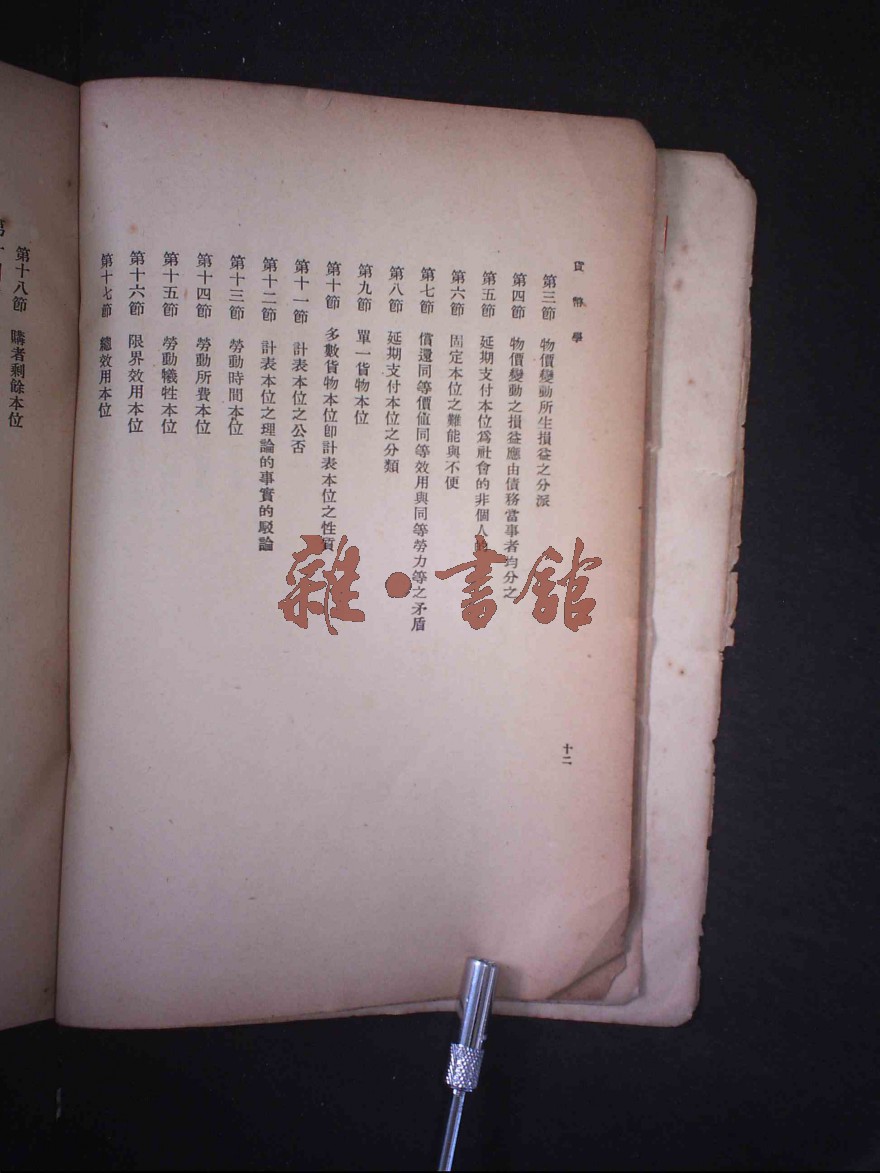 貨幣學
第三節 物價變動所生損益之分派
第四節 物價變動之損益應由債務當事者均分之
第五節 延期支付本位爲社會的非個人的
第六節 固定本位之難能與不便
第七節 償還同等價值同等效用與同等勞力等之矛盾
第八節 延期支付本位之分類
第九節 單一貨物本位
第十節 多數貨物本位卽計表本位之性質
第十一節 計表本位之公否
第十二節 計表本位之理論的事實的駁論
第十三節 勞動時間本位
第十四節 勞動所費本位
第十五節 勞動犧牲本位
第十六節 限界效用本位
第十七節 總效用本位
十二
第十八節 購者剩餘本位
雜·書館